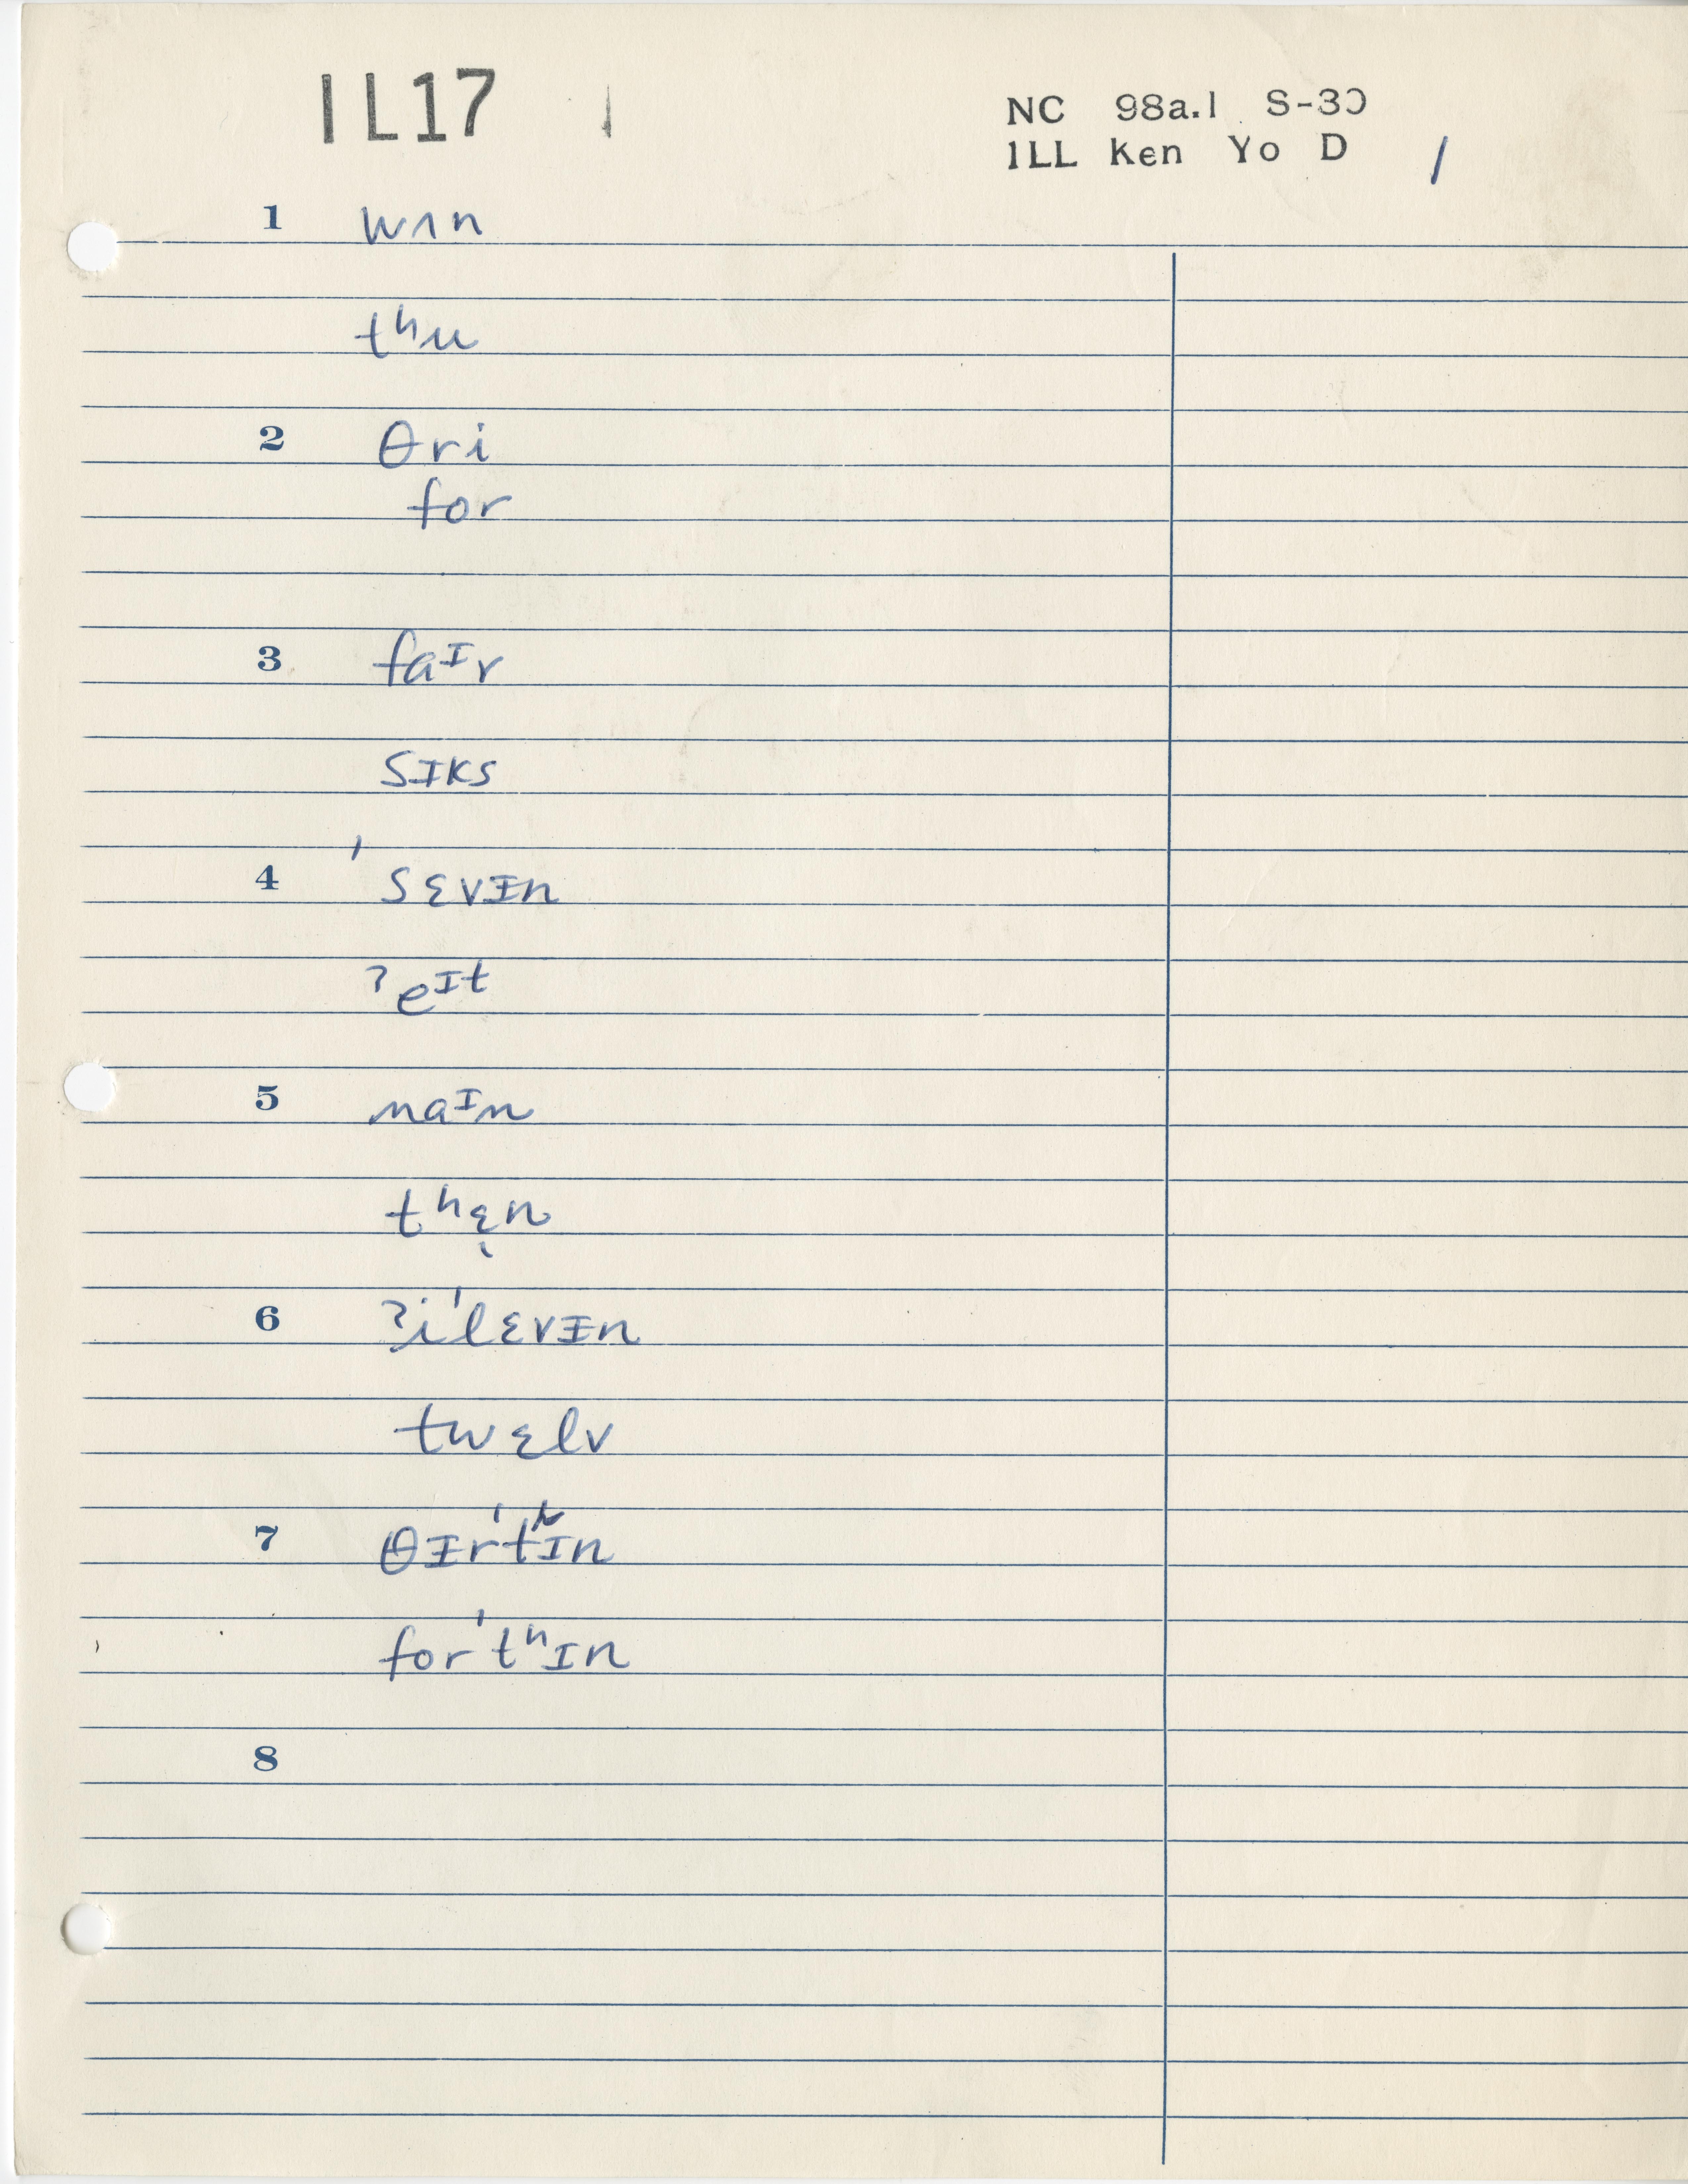 IL17 1
NC 98a.1 S-30
ILL Ken Yo D /
1 wʌn
tʰu
2 θri
for
3 faᴵr
sɪks
4 ˈsɛvɪn
ˀeᴵt
5 naᴵn
tʰɛ̨n
6 ʔiˈlɛvɪn
twɛlv
7 θɪrˈtʰɪn
forˈtʰɪn
8